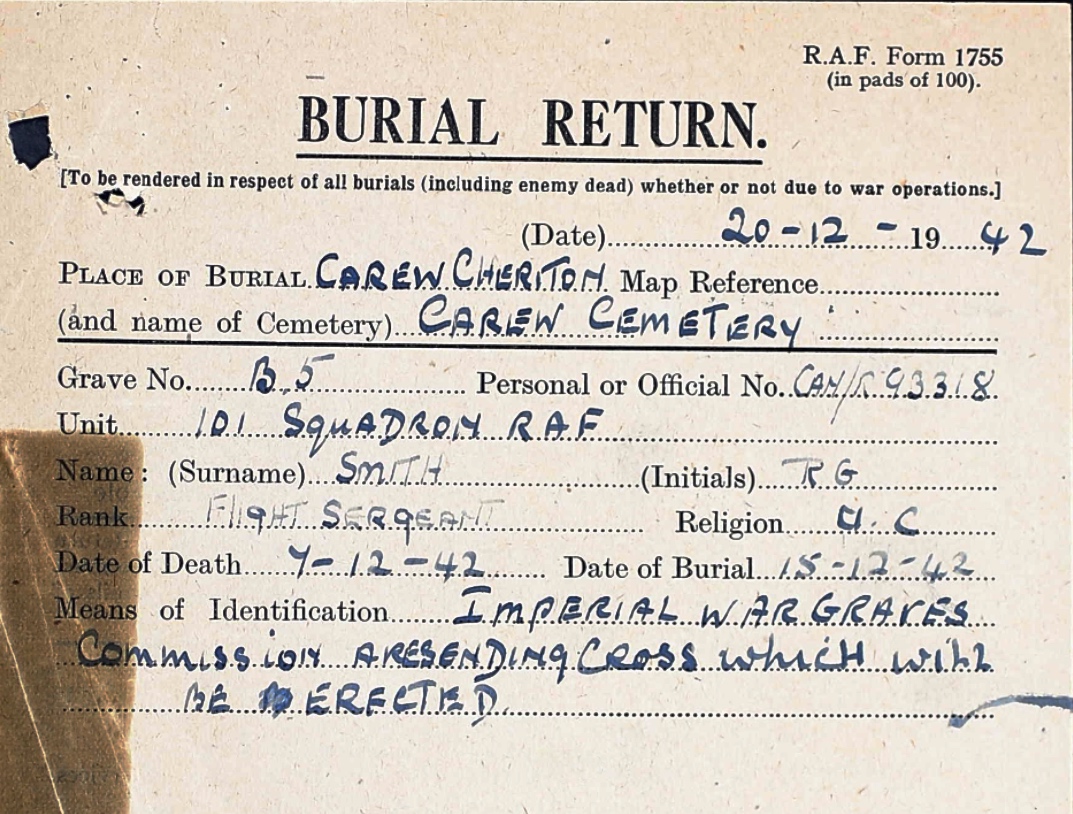 R.A.F. Form 1755
(in pads of 100).
BURIAL RETURN.
[To be rendered in respect of all burials (including enemy dead) whether or not due to war operations.]
(Date) 20-12- 19 42
PLACE OF BURIAL CAREW CHERITON Map Reference
(and name of Cemetery) CAREW CEMETERY
Grave No. B.5 Personal or Official No. CAN/R 93318
Unit 101 SQUADRON RAF
Name: (Surname) SMITH (Initials) R G
Rank FLIGHT SERGEANT Religion U.C
Date of Death 7-12-42 Date of Burial 15-12-42
Means of Identification IMPERIAL WAR GRAVES
COMMISSION ARE SENDING CROSS WHICH WILL
BE ERECTED